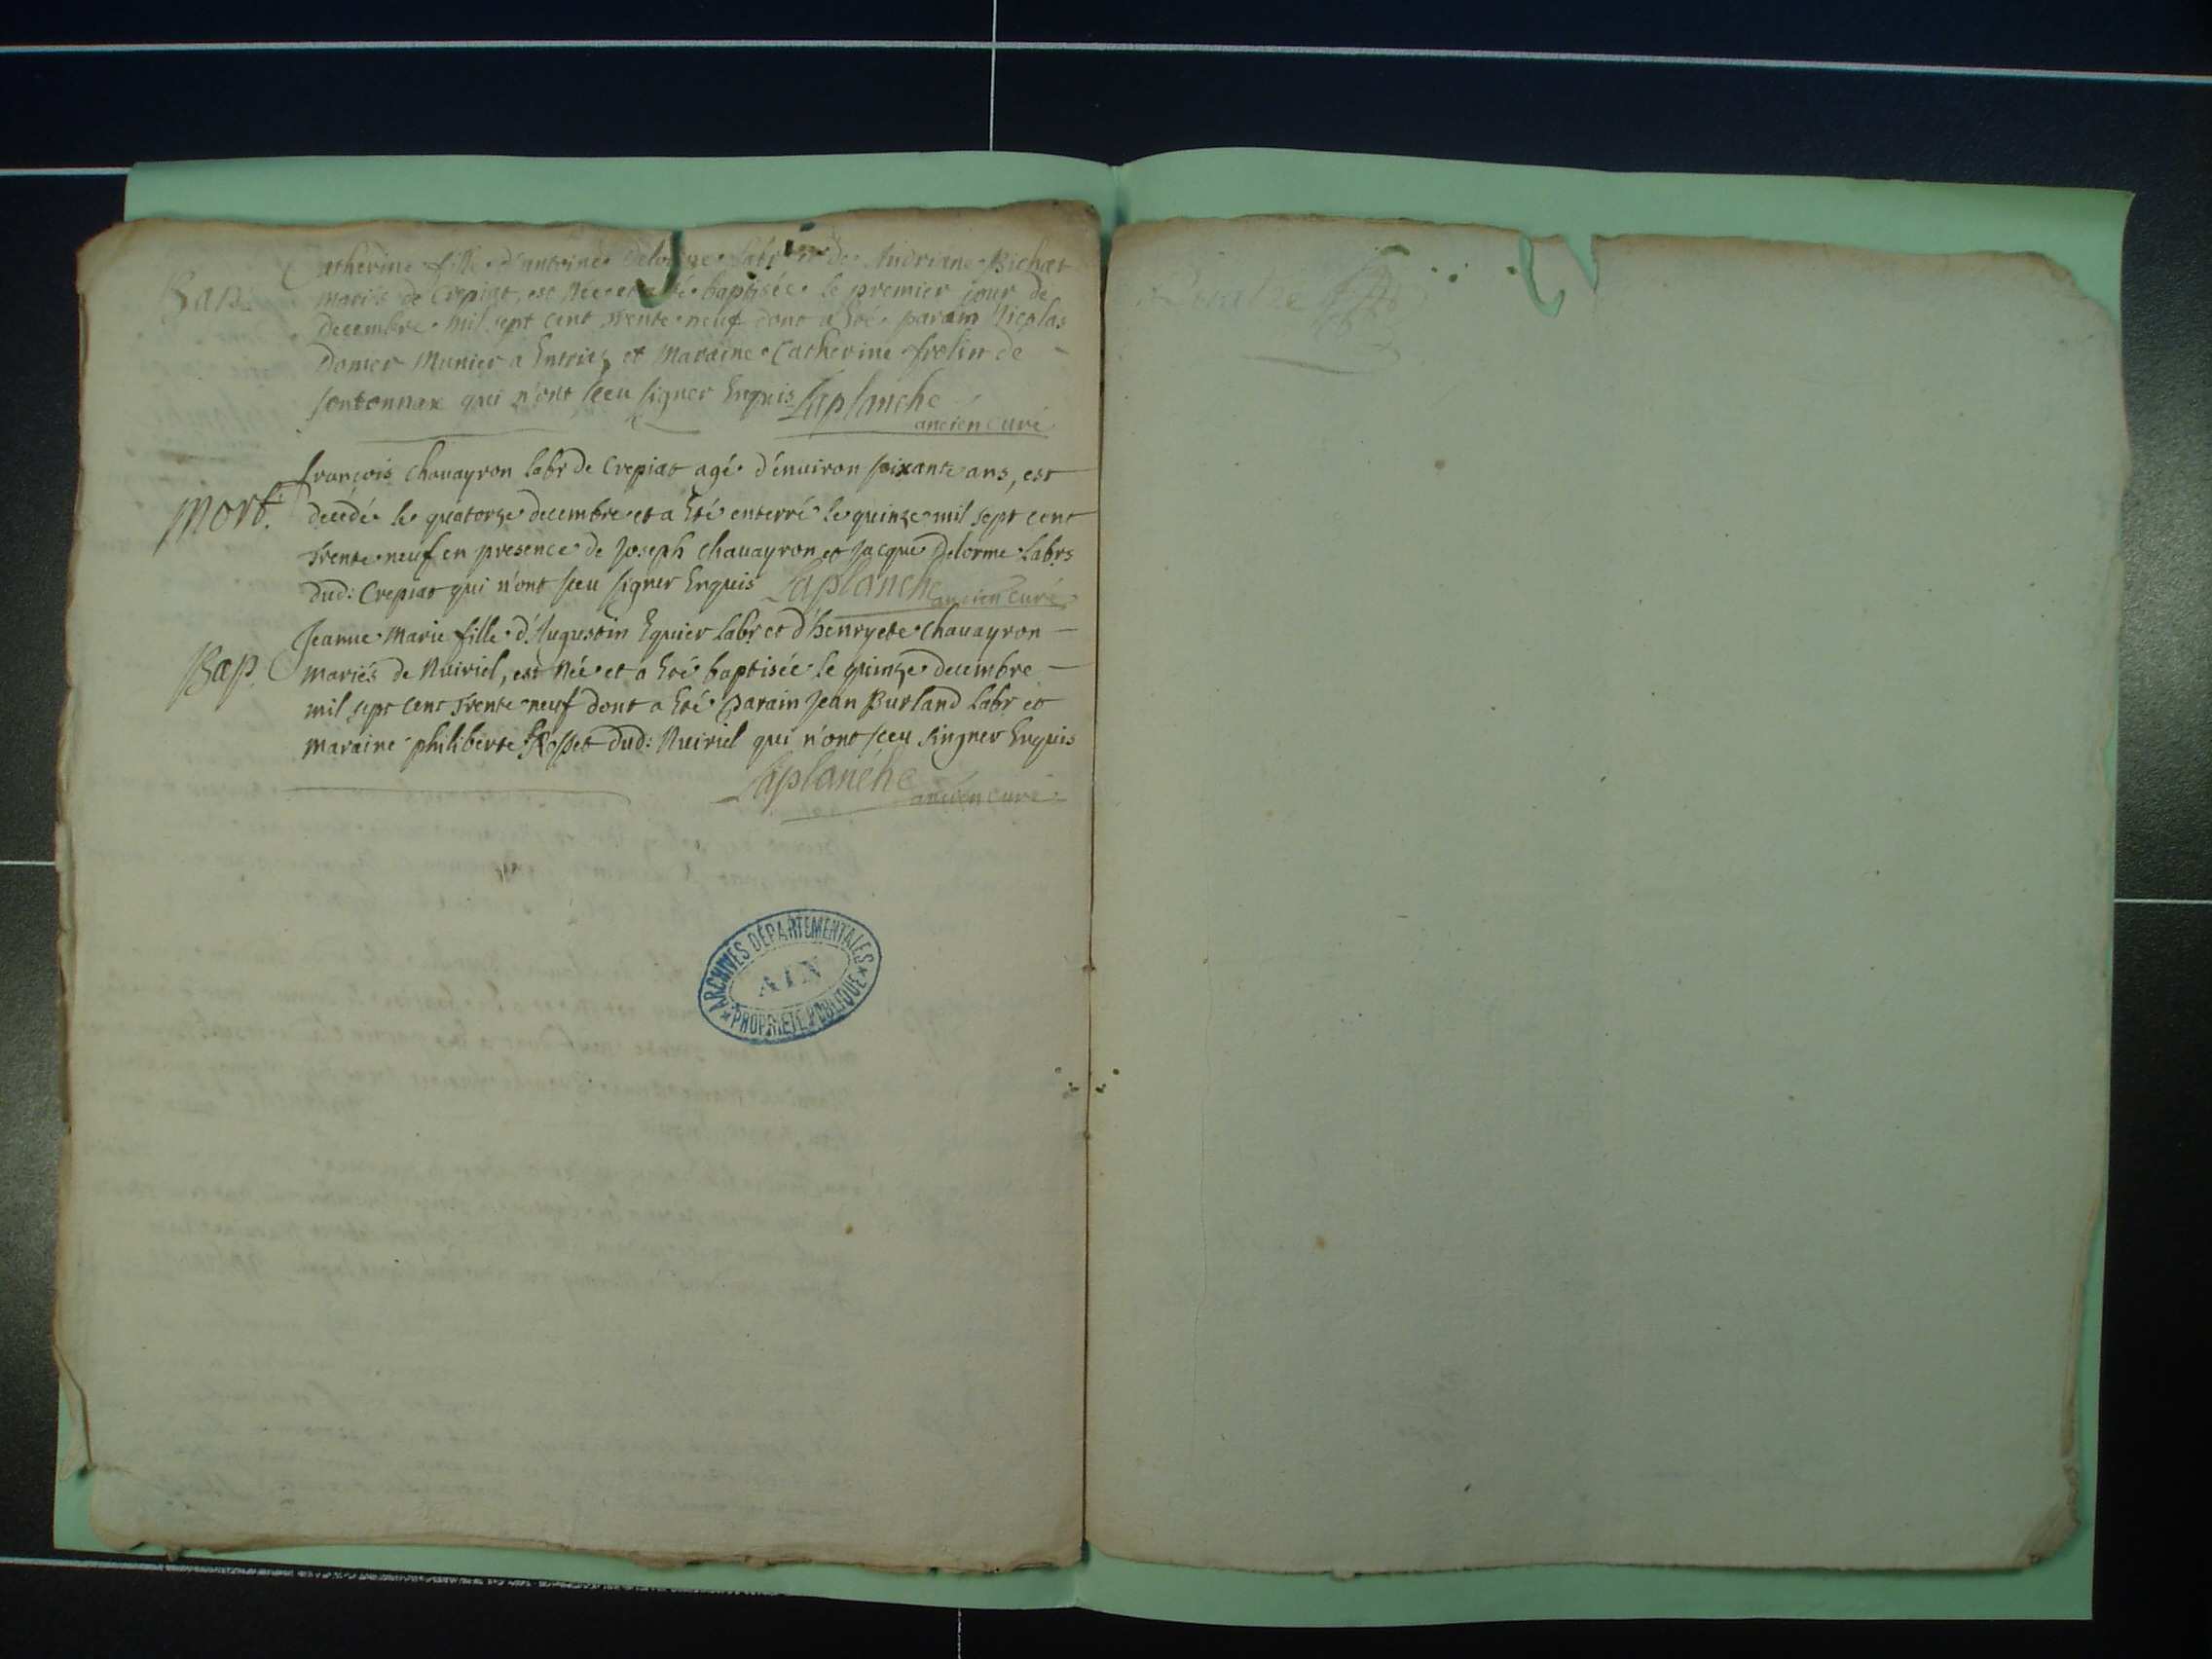 Bap.
Catherine fille d'antoine Delorme labr de Andriane Bichat
mariés de Crepiat, est Née et a été baptisée le premier jour de
decembre mil sept cent trente neuf dont a été parain Nicolas
Domer Munier a Entries et Maraine Catherine frelin de
sontonnax qui n'ont sceu signer Enquis Laplanche
ancien curé
Mort.
françois Chauayron labr de Crepiat agé d'enuiron soixante ans, est
decedé le quatorze decembre et a Eté enterré le quinze mil sept cent
trente neuf en presence de Joseph Chauayron et Jacque Delorme labrs
dud: Crepiat qui n'ont sceu signer Enquis Laplanche
ancien curé
Bap.
Jeanne Marie fille d'Augustin Equier labr et d'henryete Chauayron
mariés de Nuiriel, est Née et a Eté baptisée le quinze decembre
mil sept cent trente neuf dont a Eté parain Jean Burland labr et
maraine philiberte dud: Nuiriel qui n'ont sceu singner Enquis
Laplanche
ancien curé
ARCHIVES DÉPARTEMENTALES
AIN
PROPRIÉTÉ PUBLIQUE